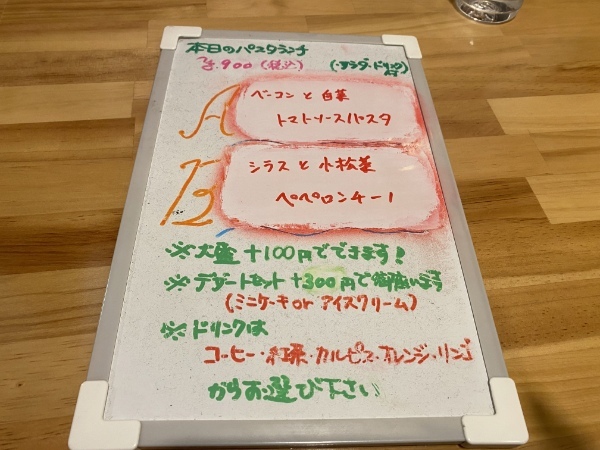 本日のパスタランチ
¥.900(税込) (・サラダ・ドリンク付)
A ベーコンと白菜
トマトソースパスタ
B シラスと小松菜
ペペロンチーノ
※大盛+100円でできます!
※デザートセット+300円で御座います
(ミニケーキorアイスクリーム)
※ドリンクは
コーヒー・紅茶・カルピス・オレンジ・リンゴ
からお選び下さい